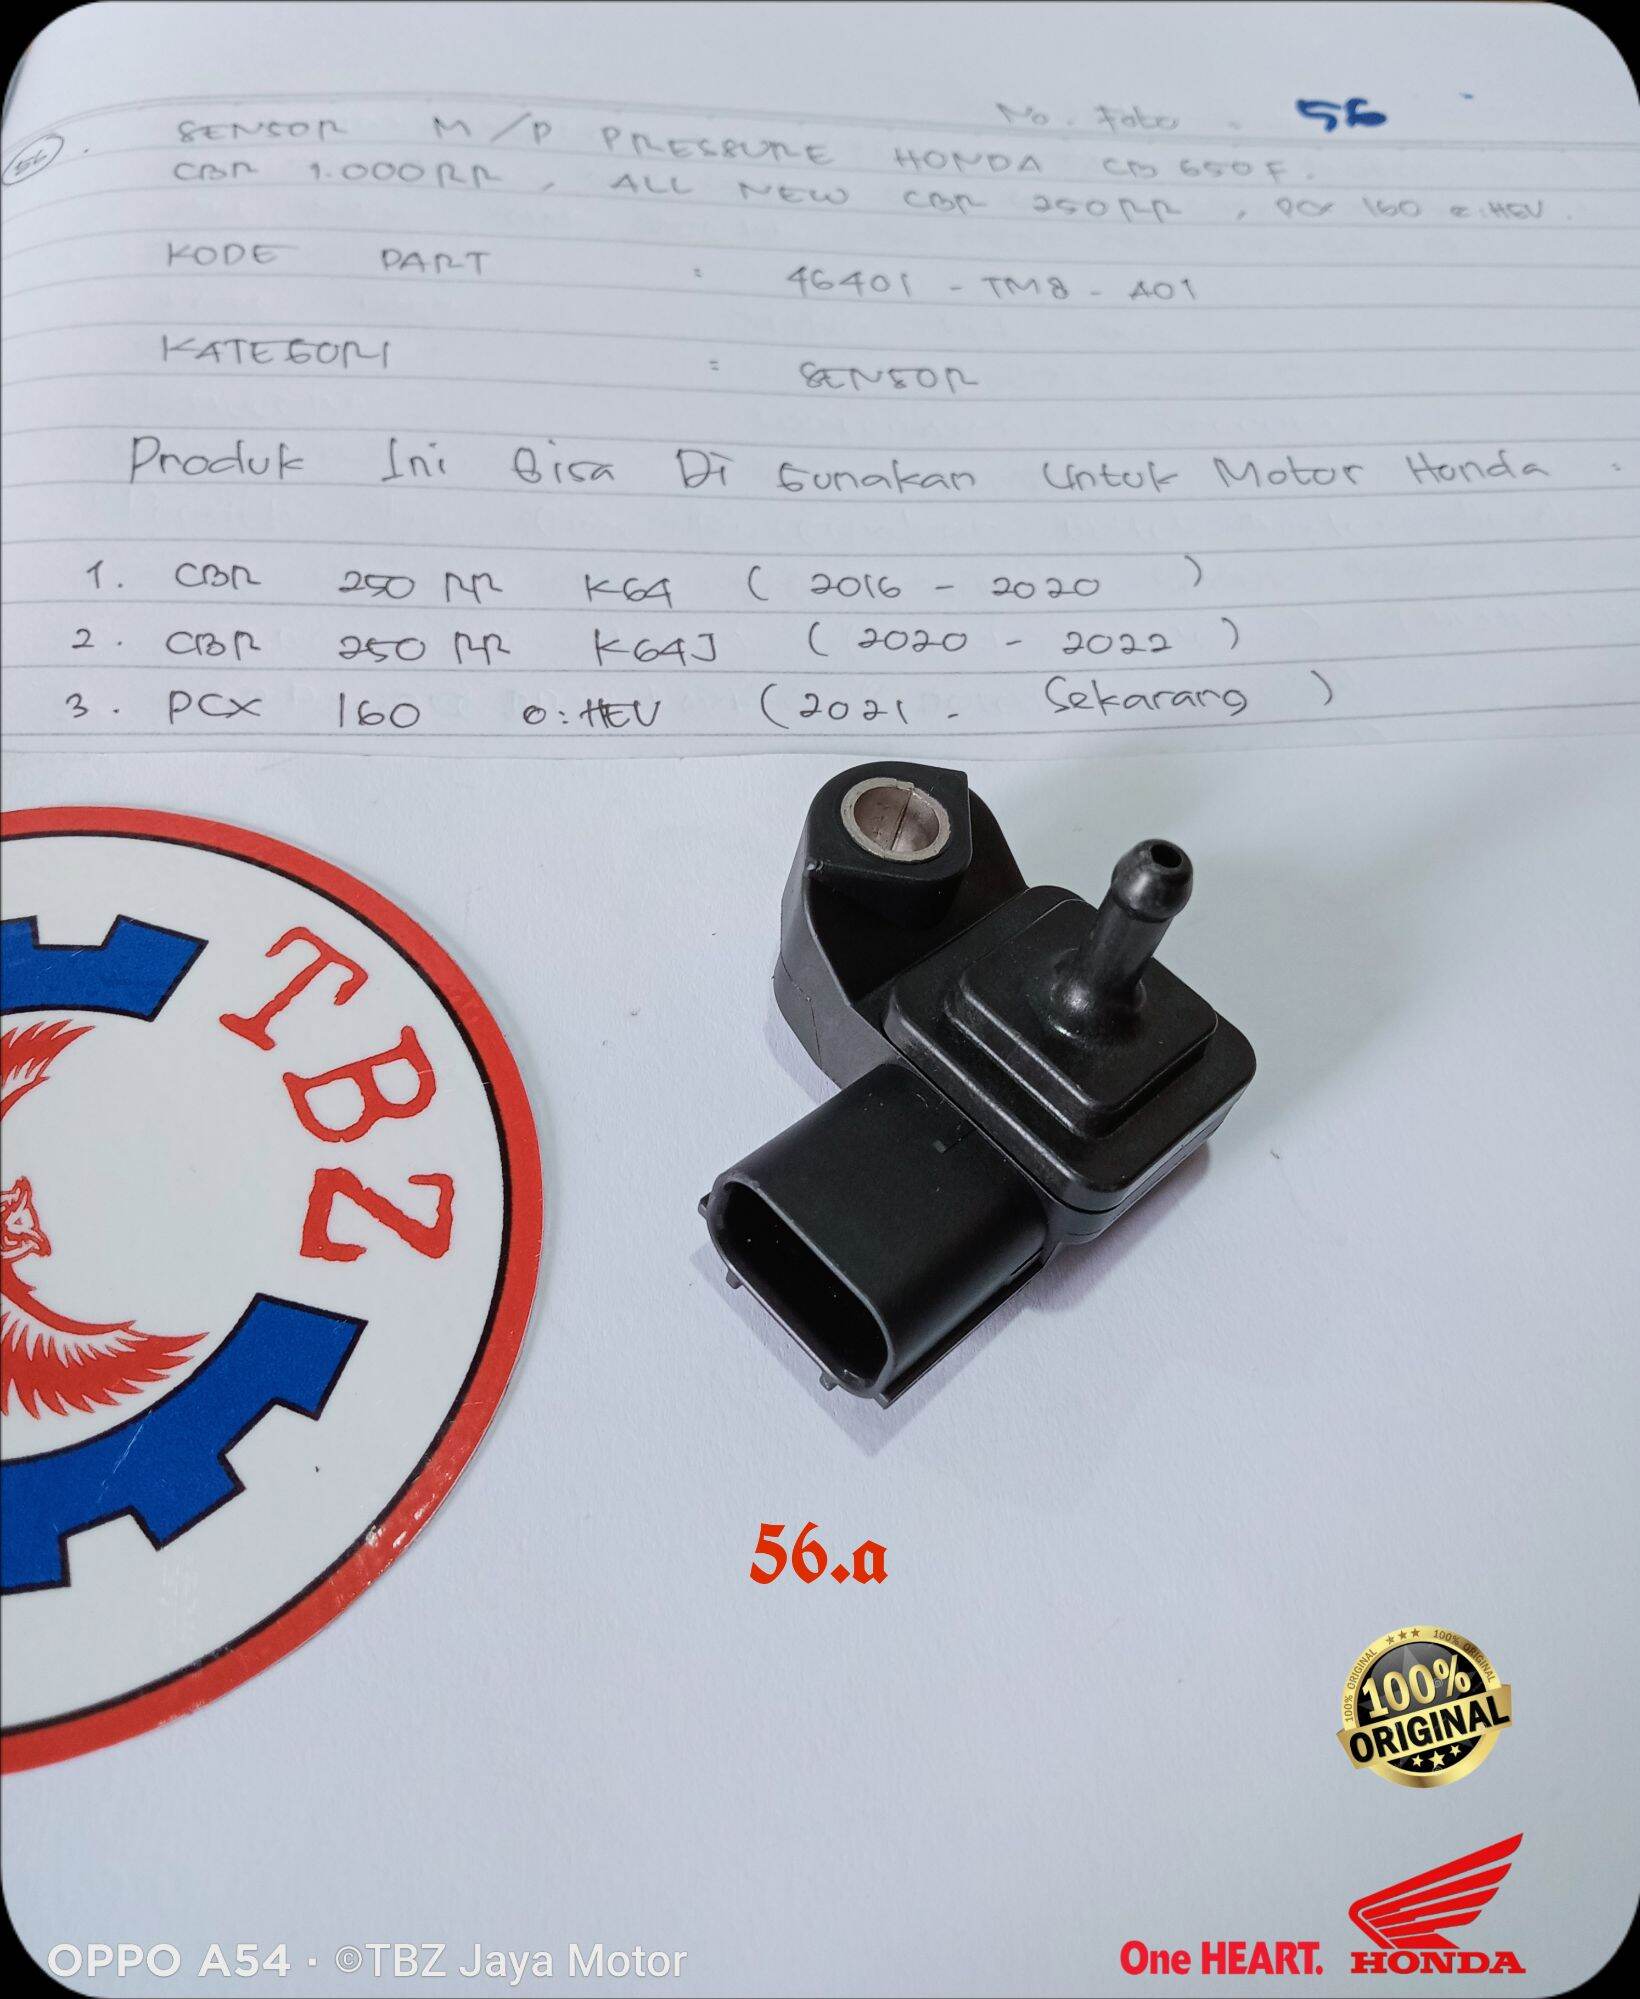 No. Foto . 56
56.
SENSOR M/P PRESSURE HONDA CB 650F.
CBR 1.000RR, ALL NEW CBR 250RR, PCX 160 e:HEV.
KODE PART : 46401 - TM8 - A01
KATEGORI : SENSOR
Produk Ini Bisa Di Gunakan Untuk Motor Honda :
1. CBR 250 RR K64 ( 2016 - 2020 )
2. CBR 250 RR K64J ( 2020 - 2022 )
3. PCX 160 e:HEV (2021 - Sekarang )
TBZ
56.a
100% ORIGINAL 100% ORIGINAL
100%
ORIGINAL
One HEART. HONDA
OPPO A54 · ©TBZ Jaya Motor